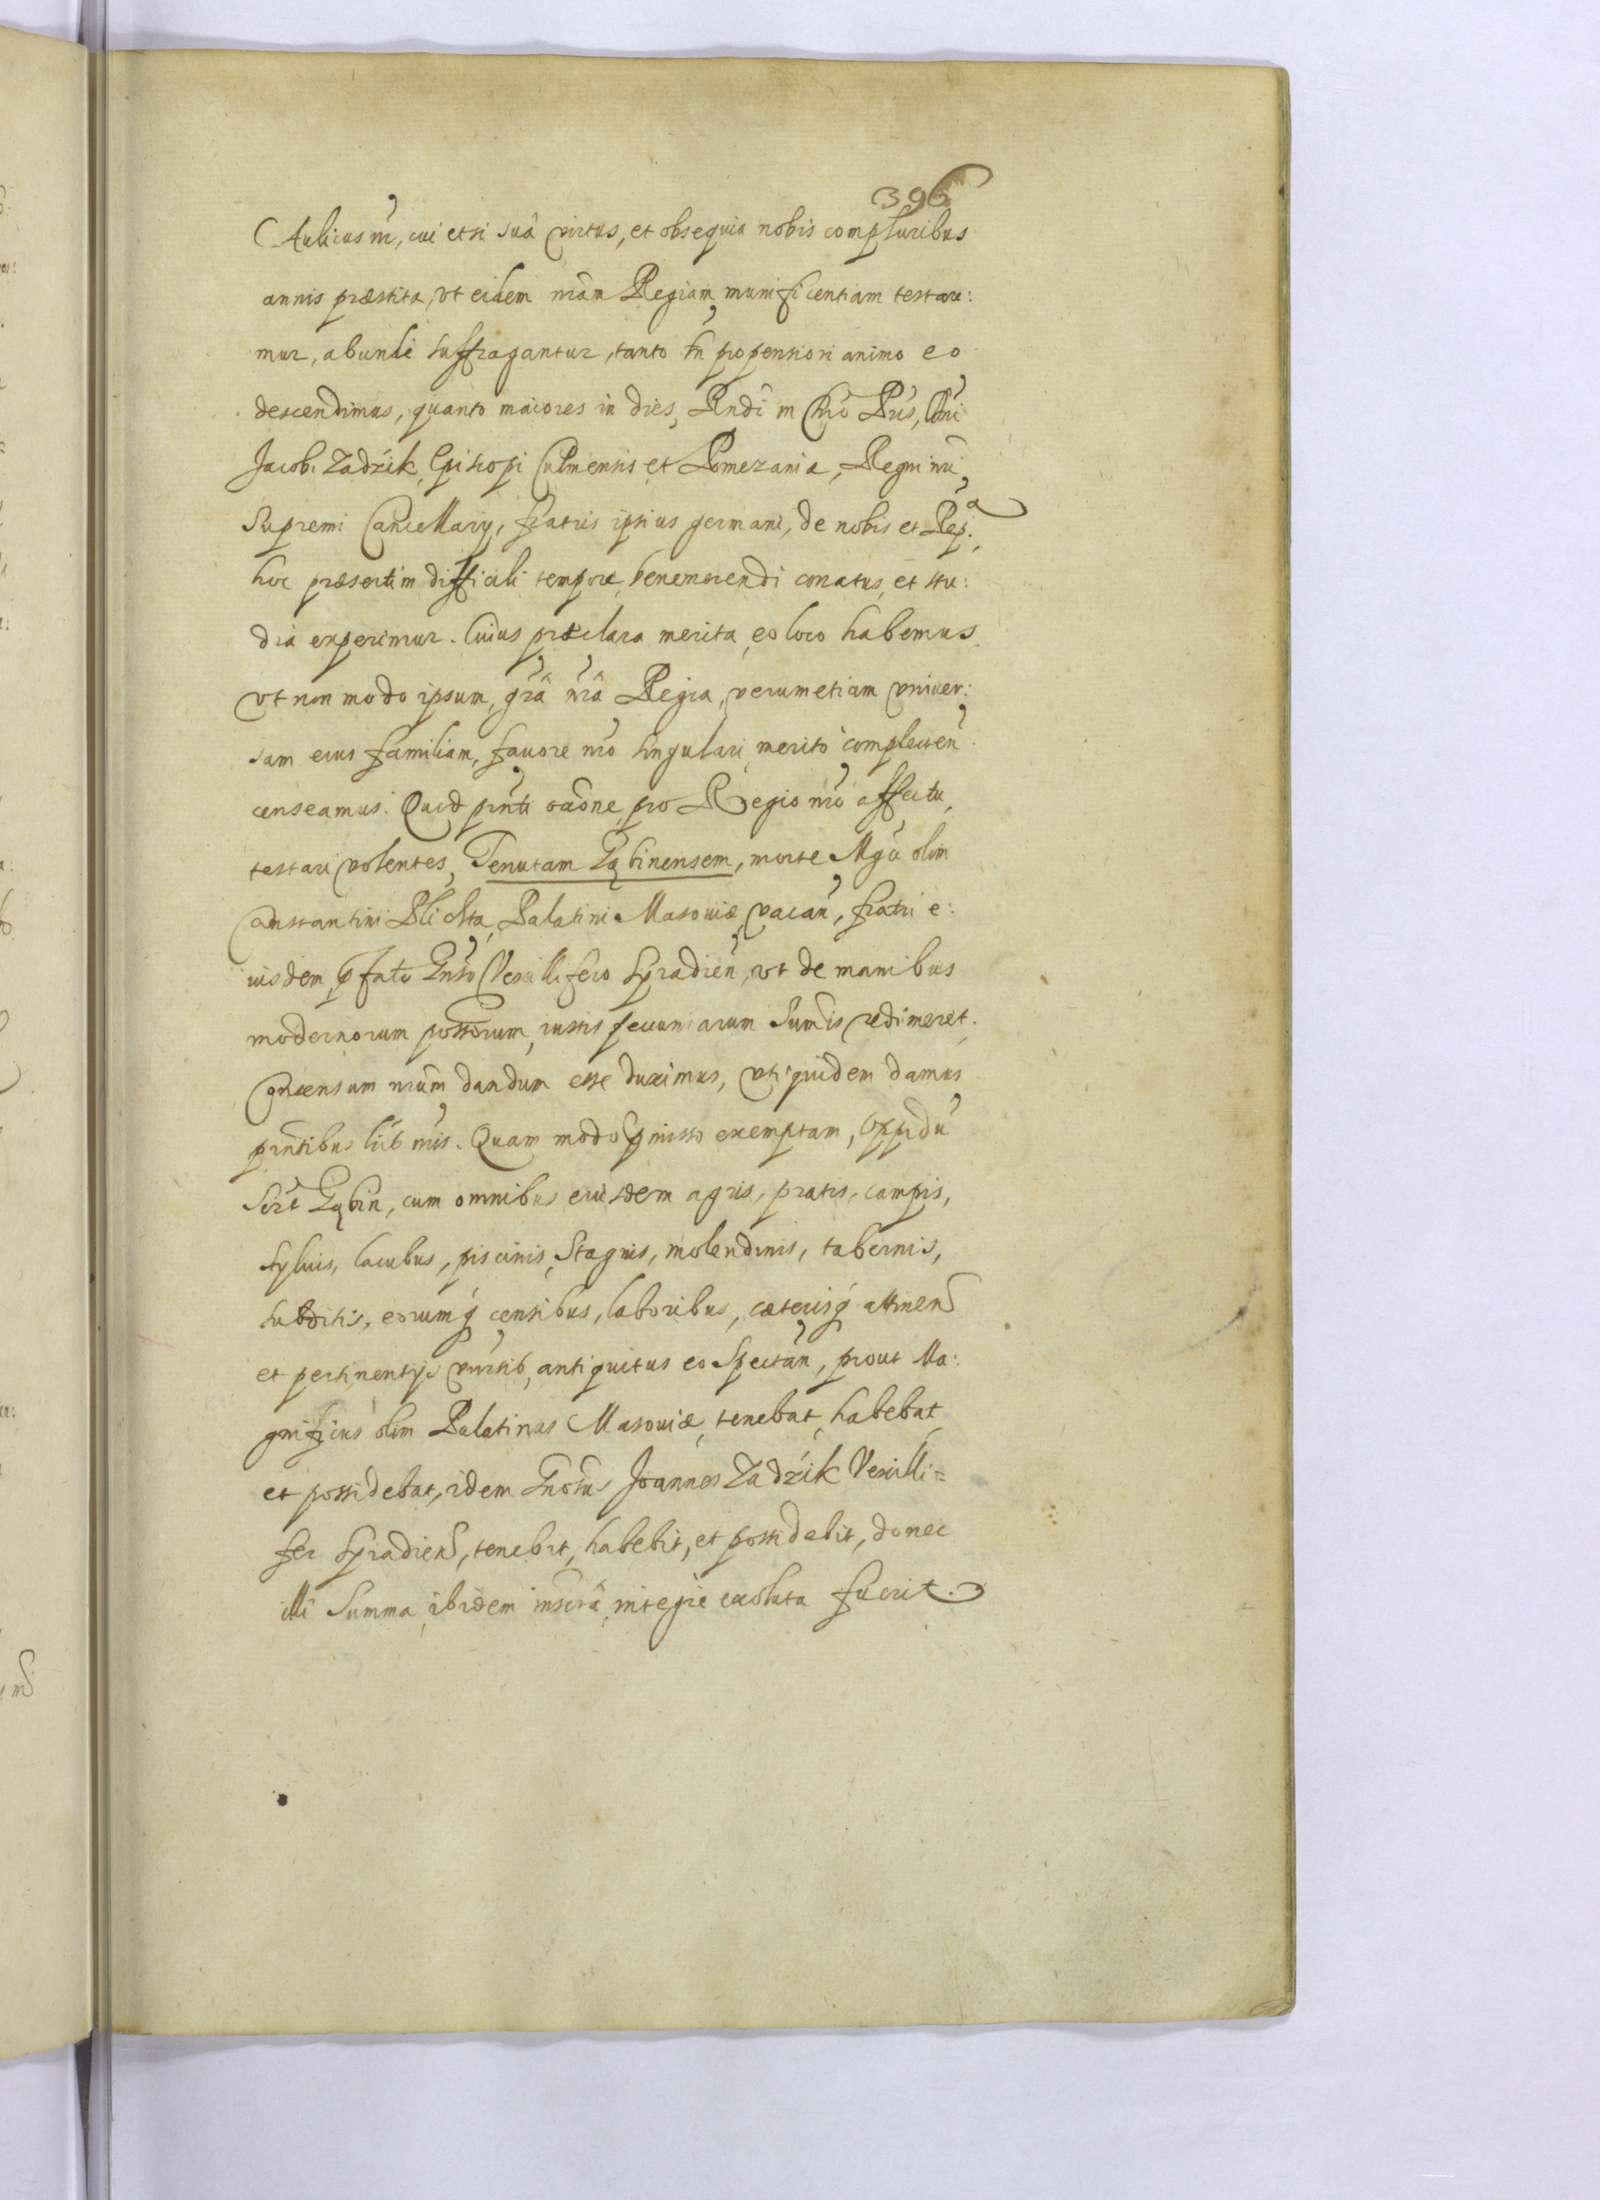 396
Aulicus nr̃, cui etsi suâ virtus, et obsequia nobis compluribus
annis præstita, vt eidem nr̃am Regiam munificentiam testare:
mur, abunde suffragantur, tanto tn̄ propensiori animo eo
descendimus, quanto maiores in dies, Rndi in Chrõ Pris, Dni
Jacobi Zadzik, Episcopi Culmensis et Pomezaniæ, Regni nri
Supremi Cancellarij, fratris ipsius germani, de nobis et Rep.ca
hoc præsertim difficili tempore, benemerendi conatus, et stu:
dia experimur. Cuius præclara merita, eo loco habemus
vt non modo ipsum, gr̃â nr̃â Regia, verumetiam vniver:
sam eius familiam, favore nrõ singulari, merito complecten̄
censeamus. Quod pñti rãone, pro Regio nrõ affectu,
testari volentes, Tenutam Gąbinensem, morte Mgci olim
Constantini Plichta, Palatini Masouiæ, vacan̄, fratri e:
iusdem, pfato Gnso Vexillifero Syradien̄, vt de manibus
modernorum possõrum, iustis pecuniarum Sum̄is redimeret,
consensum nr̃um dandum esse duximus, vti quidem damus
pñtibus lris nr̃is. Quam modo pmisso exemptam, Oppidũ
scil̃t Gąbin, cum omnibus eiusdem agris, pratis, campis,
syluis, lacubus, piscinis, Stagnis, molendinis, tabernis,
subditis, eorumq́ censibus, laboribus, cæterisq́ attinen̄
et pertinentijs vnirsis, antiquitus eo spectan̄, prout Ma:
gnificus olim Palatinus Masouiæ, tenebat, habebat,
et possidebat, idem Gnosus Joannes Zadzik Vexilli=
fer Syradien̄, tenebit, habebit, et possidebit, donec
illi Summa, ibidem inscr̃a, integre exoluta fuerit.